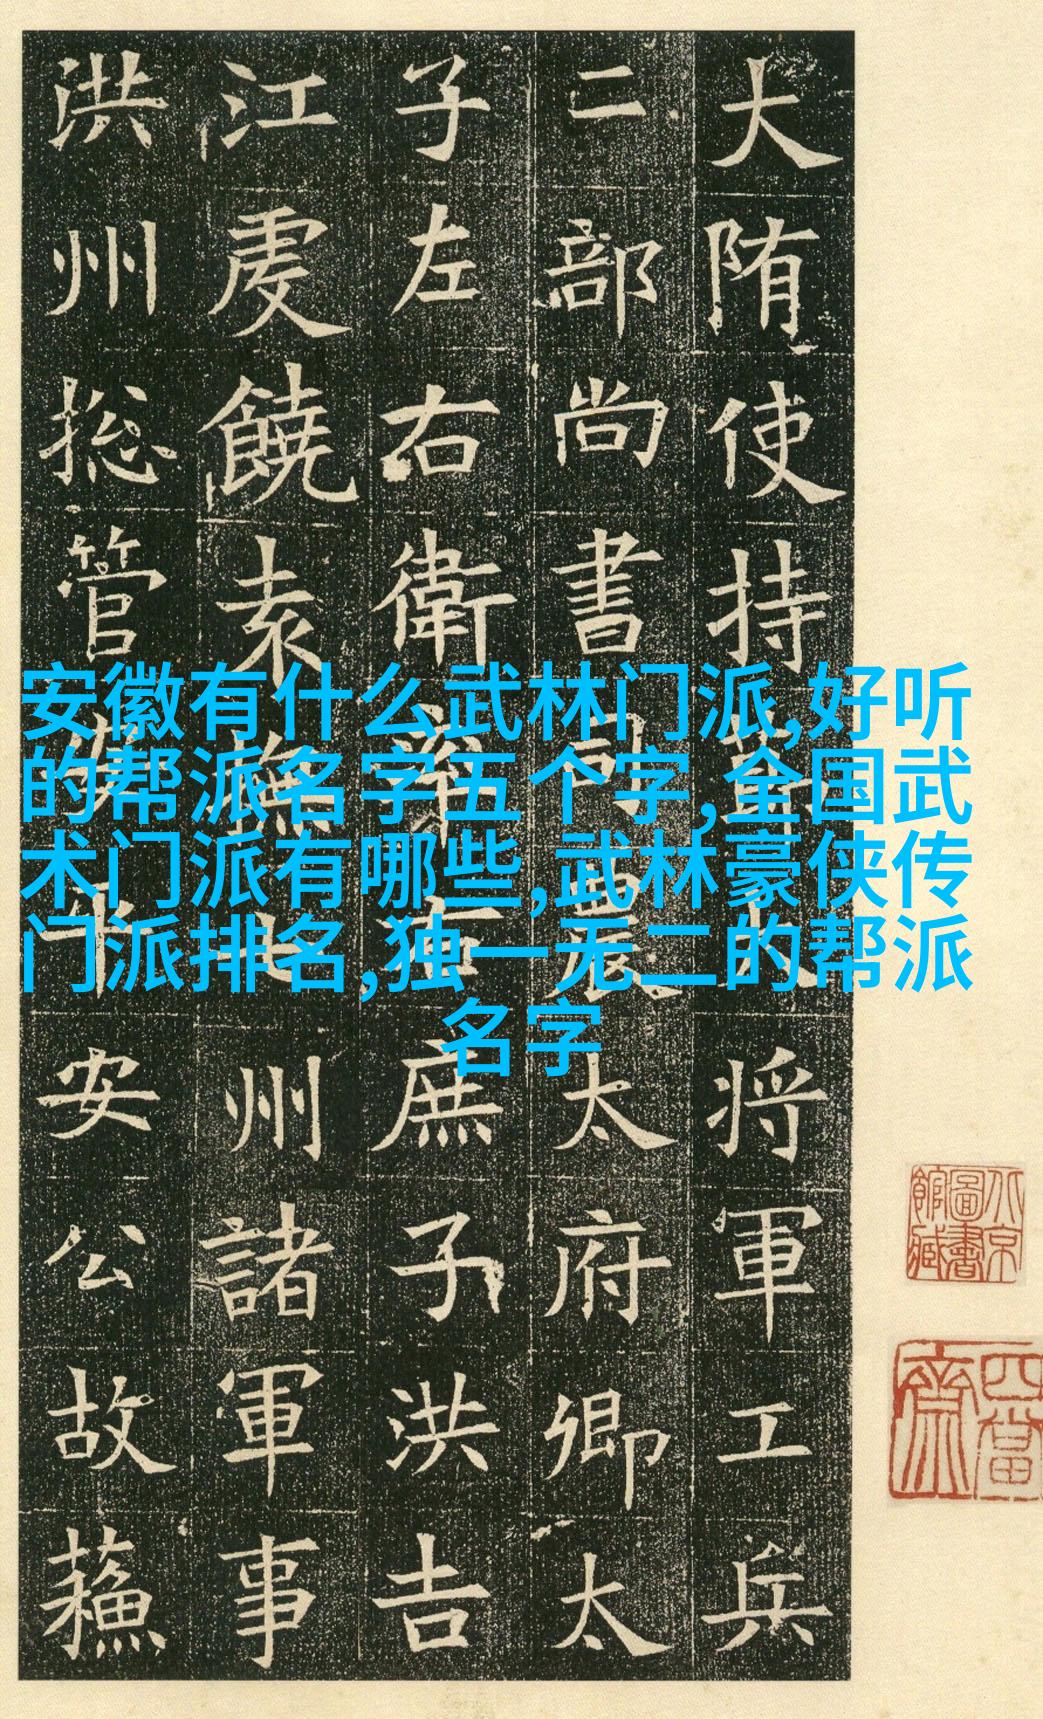 安徽有什么武林门派,好听
的帮派名字五个字,全国武
术门派有哪些,武林豪侠传
门派排名,独一无二的帮派
名字
大隋使持節大將軍工兵
二部尚書司農太府卿太
子左右衛率右庶子洪吉
江虔饒袁撫七州諸軍事
洪州捴管安平安公故蘇
北京圖書館藏
四當齋